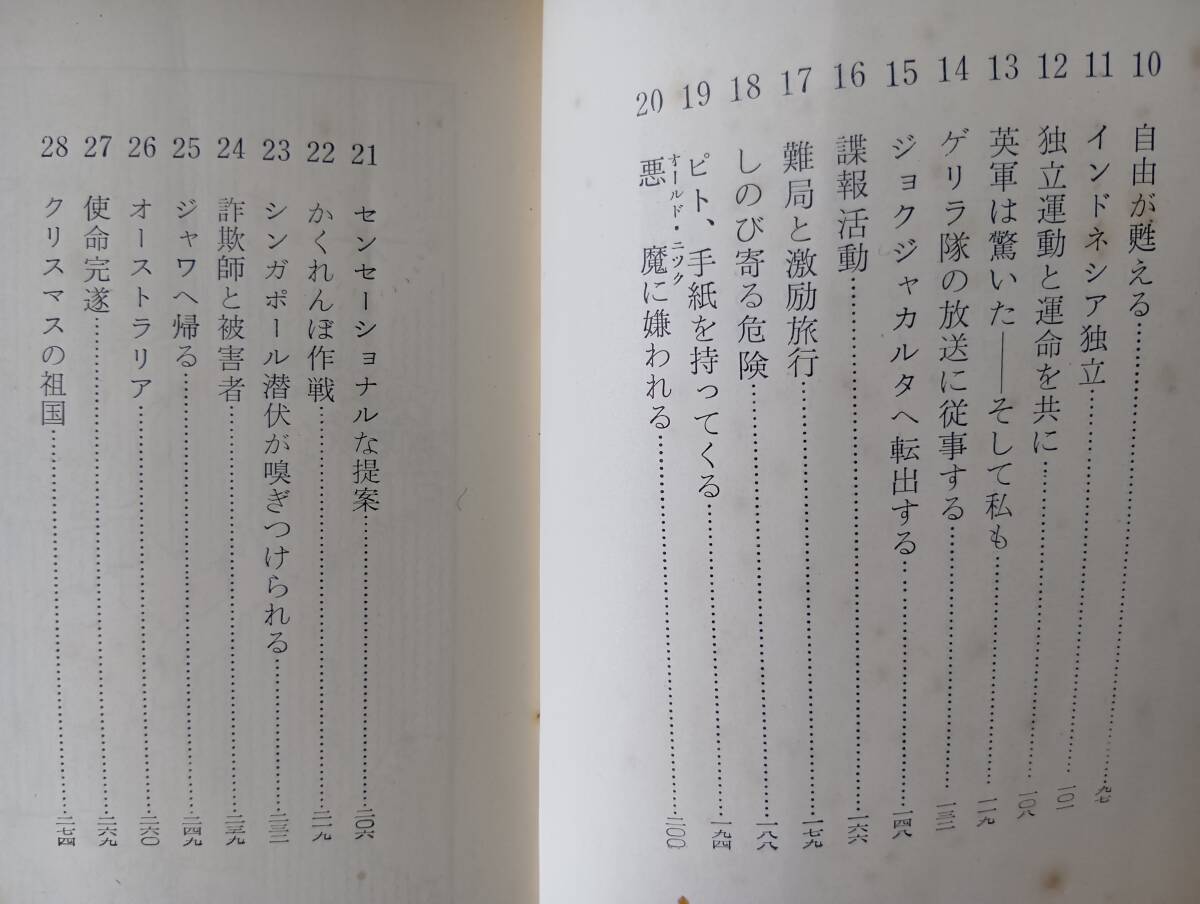 10 自由が甦える……九七
11 インドネシア独立……一〇一
12 独立運動と運命を共に……一〇八
13 英軍は驚いた――そして私も……一一九
14 ゲリラ隊の放送に従事する……一三二
15 ジョクジャカルタへ転出する……一四八
16 諜報活動……一六六
17 難局と激励旅行……一七九
18 しのび寄る危険……一八八
19 ピト、手紙を持ってくる……一九四
20 悪魔に嫌われる……二〇〇
オールド・ニック
21 センセーショナルな提案……二〇六
22 かくれんぼ作戦……二一九
23 シンガポール潜伏が嗅ぎつけられる……二三二
24 詐欺師と被害者……二三九
25 ジャワへ帰る……二四九
26 オーストラリア……二六〇
27 使命完遂……二六九
28 クリスマスの祖国……二七四